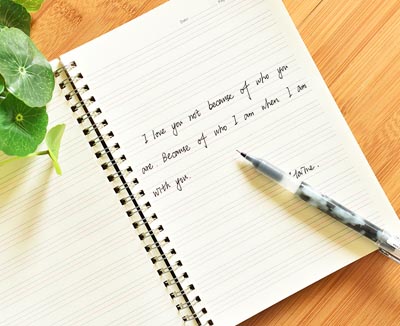 Date
I love you not because of who you
are. Because of who I am when I am
with you.